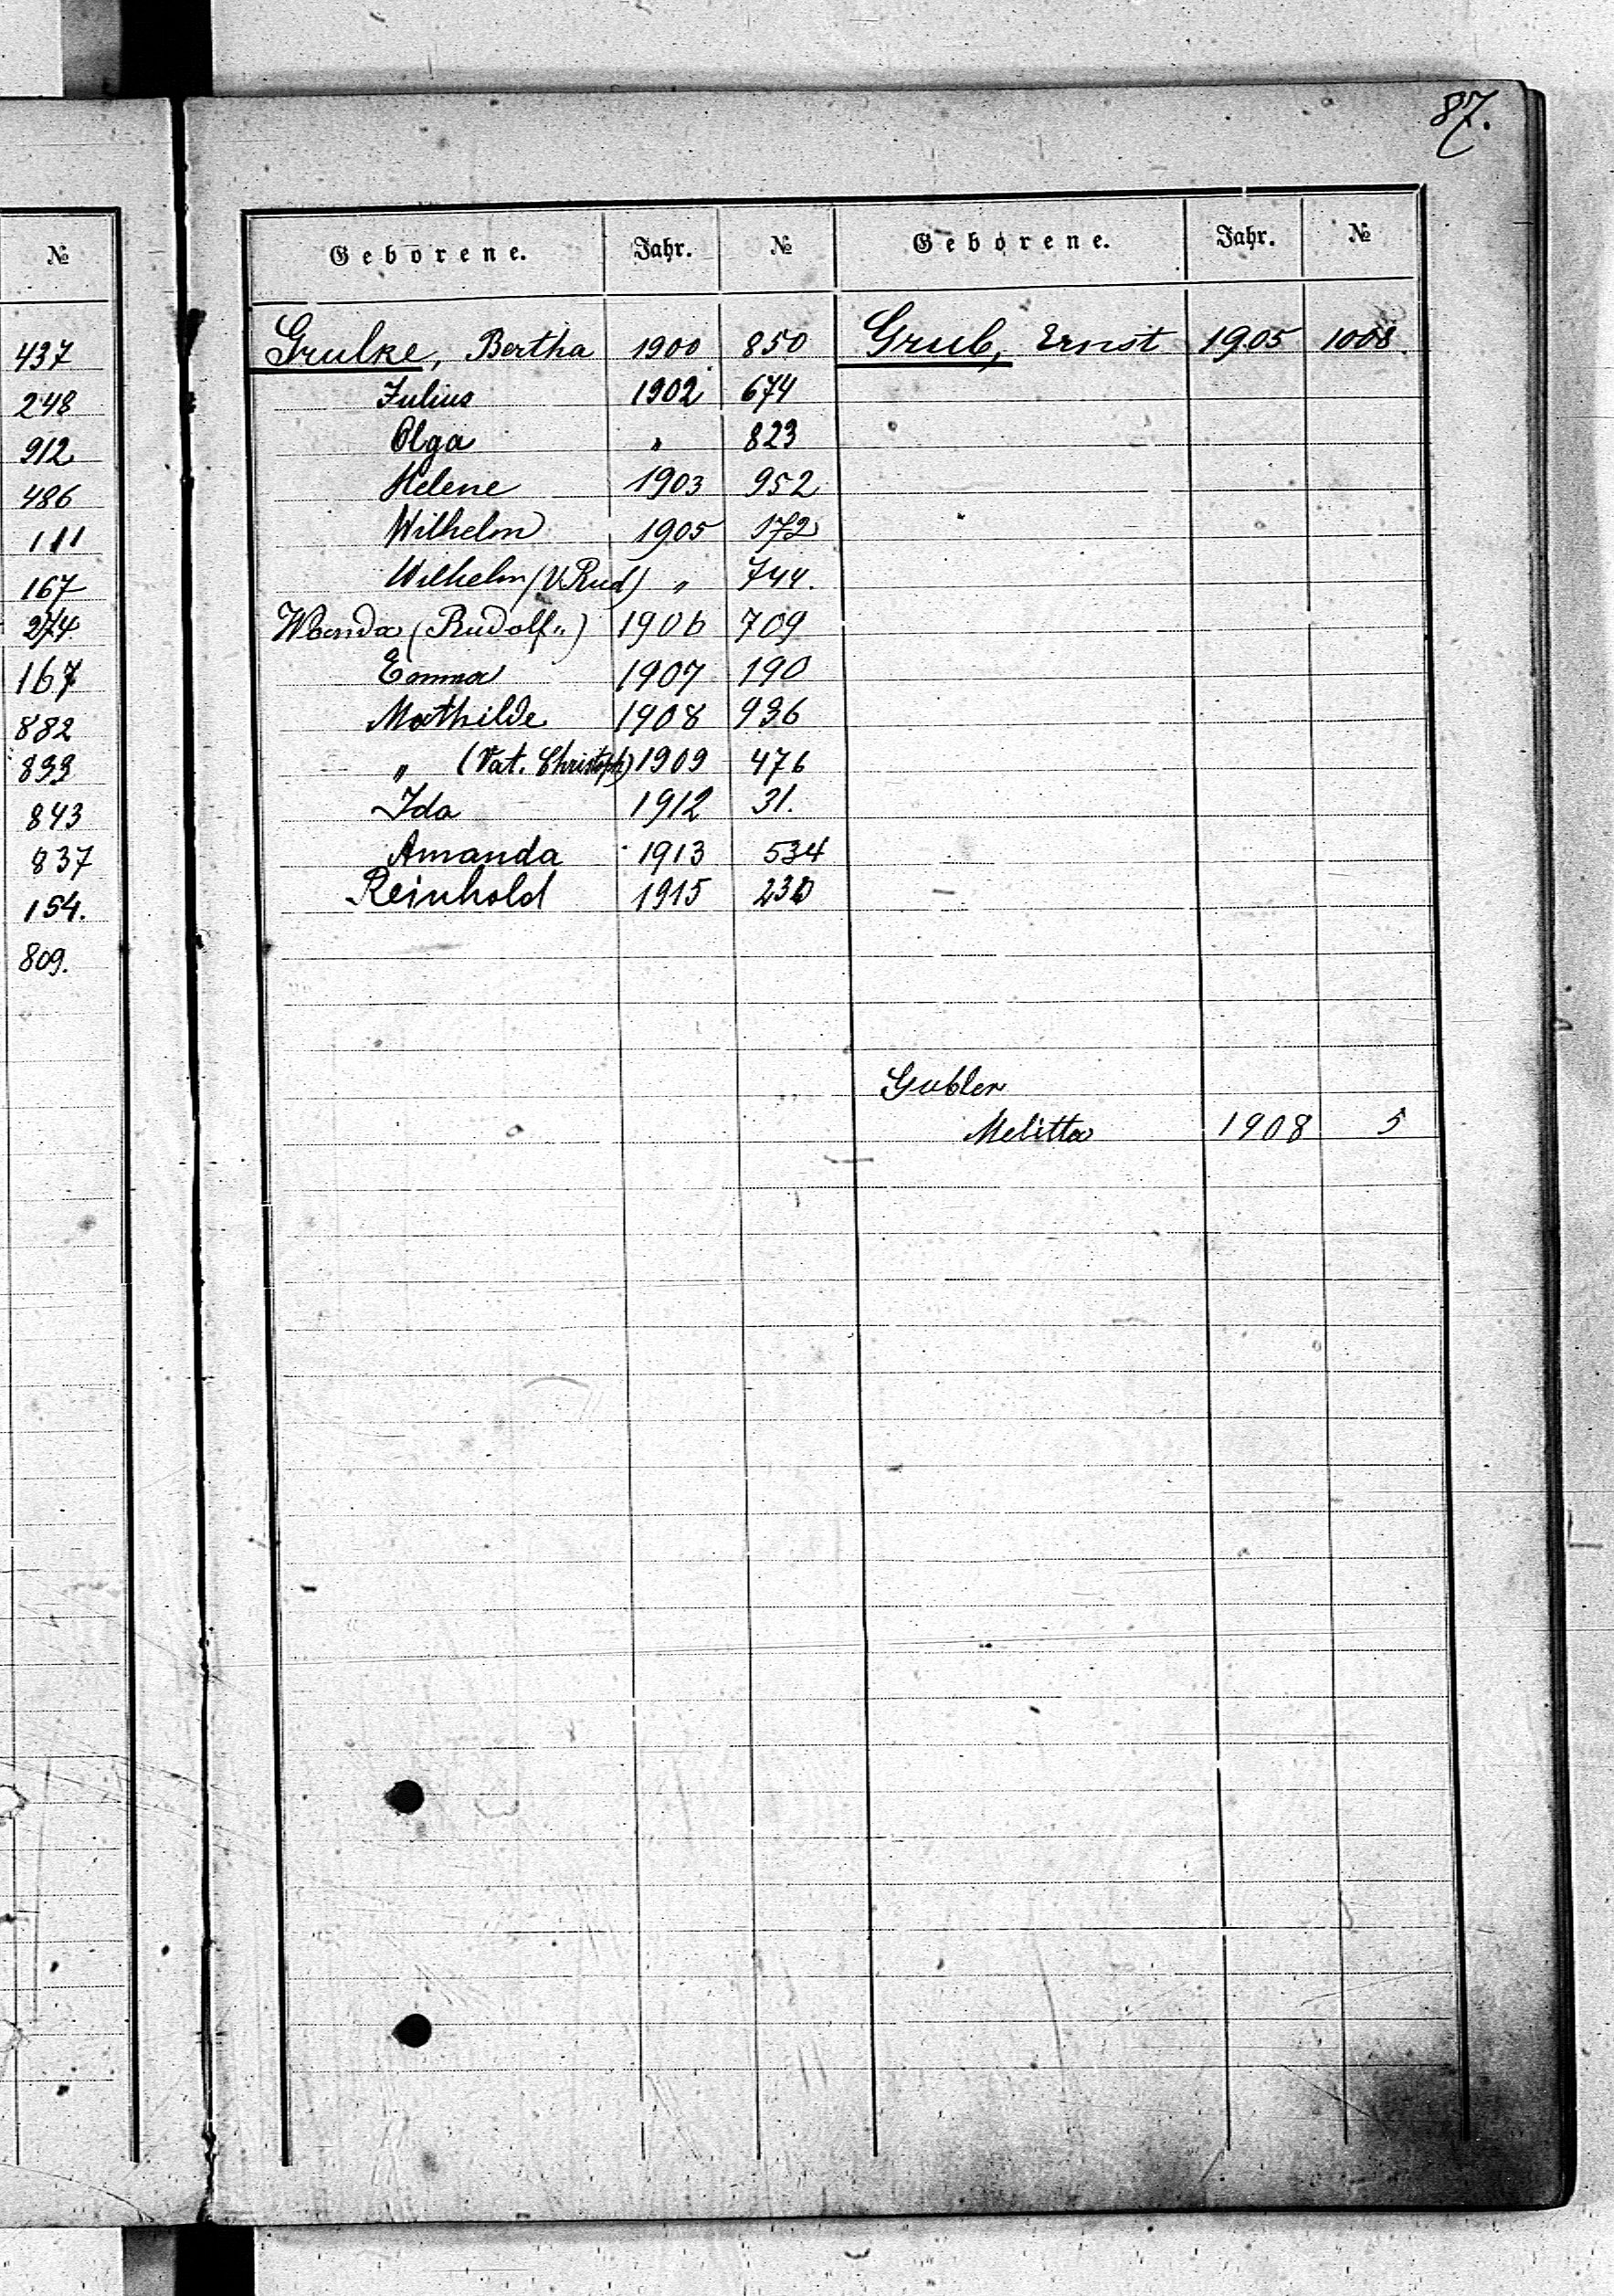 87.
№
437
248
912
486
111
167
274
167
882
833
843
837
154.
809.
Geborene. Jahr. №
Grulke, Bertha 1900 850
Julius 1902 674
Olga " 823
Helene 1903 952
Wilhelm 1905 172
Wilhelm (V. Rud) " 744.
Wanda (Rudolf") 1906 709
Emma 1907 190
Mathilde 1908 936
" (Vat. Christoph) 1909 476
Ida 1912 31.
Amanda 1913 534
Reinhold 1915 230
Geborene. Jahr. №
Grub, Ernst 1905 1008.
Gubler
Melitta 1908 5